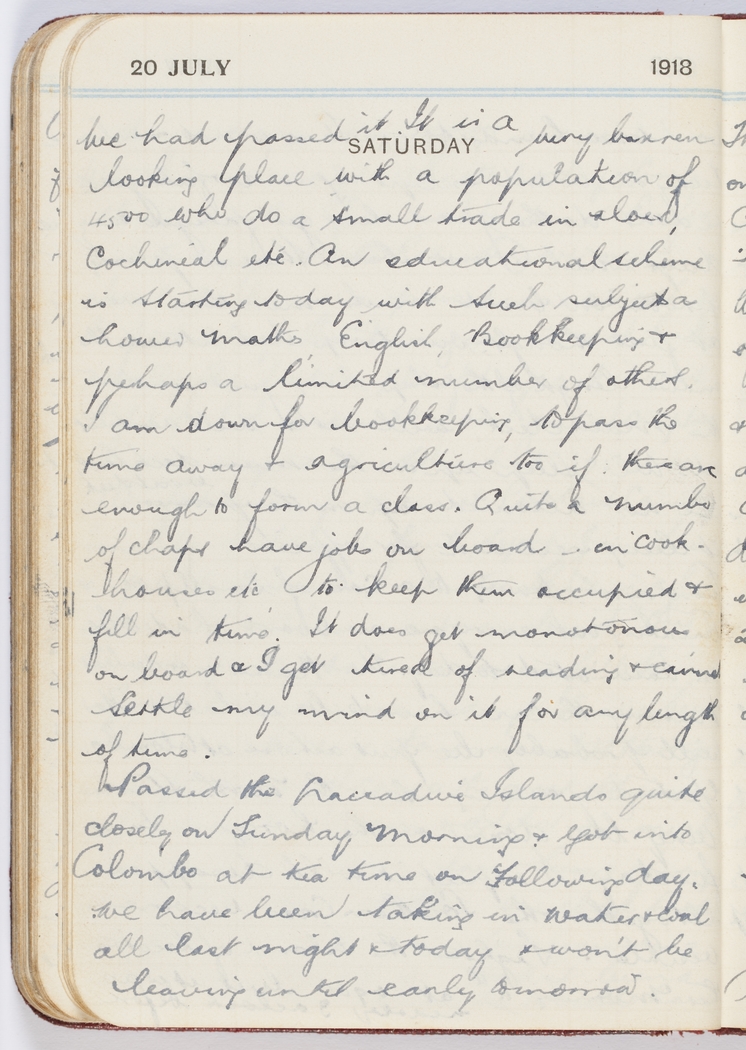 20 JULY 1918
SATURDAY
we had passed it It is a very barren
looking place with a population of
4500 who do a small trade in aloes,
Cochineal etc. An educational scheme
is starting today with such subjects a
maths, English, Bookkeeping &
perhaps a limited number of others.
I am down for bookkeeping, to pass the
time away & agriculture too if there are
enough to form a class. Quite a number
of chaps have jobs on board - in cook-
houses etc to keep them occupied &
fill in time. It does get monotonous
on board & I get tired of reading & cannot
settle my mind on it for any length
of time.
Passed the Laccadive Islands quite
closely on Sunday morning & got into
Colombo at tea time on following day.
We have been taking in water & coal
all last night & today & won't be
leaving until early tomorrow.